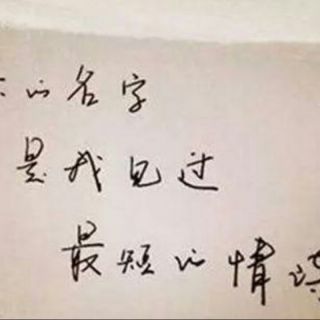 的名字
是我见过
最短的情